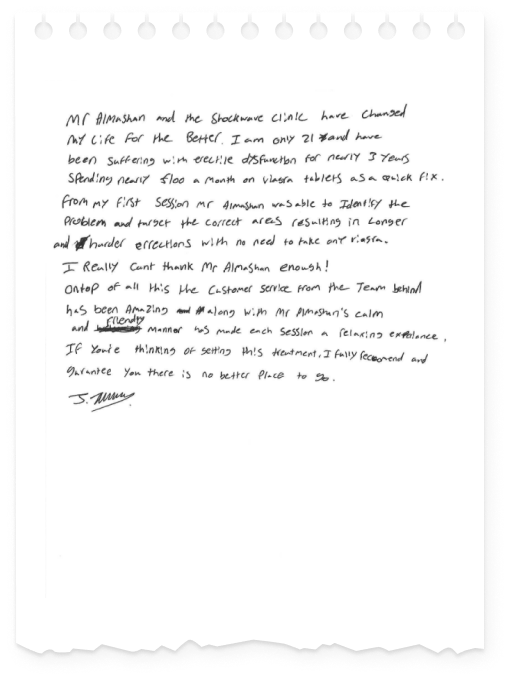 Mr Almashan and the Shockwave clinic have changed
my life for the Better. I am only 21 and have
been suffering with erectile dysfunction for nearly 3 years
spending nearly £100 a month on viagra tablets as a quick fix.
From my first session Mr Almashan was able to Identify the
Problem and target the correct areas resulting in Longer
and harder errections with no need to take any viagra.
I Really cant thank Mr Almashan enough!
Ontop of all this the Customer service from the Team behind
has been Amazing along with Mr Almashan's calm
and friendly manner has made each session a relaxing
If You're thinking of getting this treatment, I fully and
garantee you there is no better Place to go.
J.